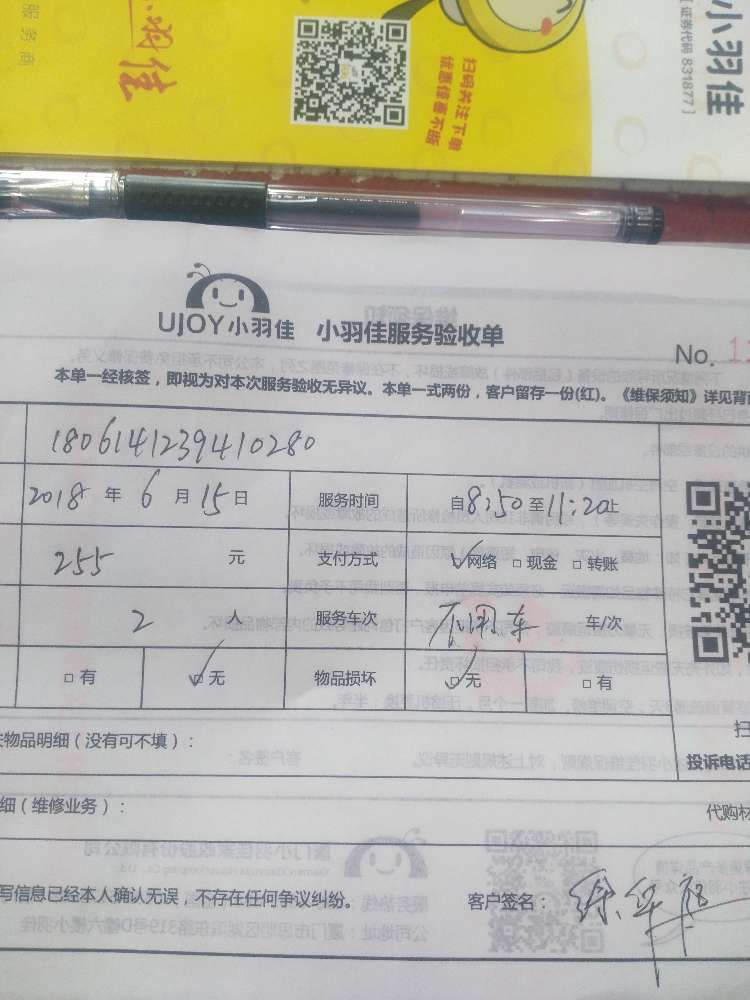 服务商
小羽佳
扫码关注下单
优惠惊喜不断
小羽佳
[证券代码 831877]
UJOY小羽佳 小羽佳服务验收单
No. 1
本单一经核签，即视为对本次服务验收无异议。本单一式两份，客户留存一份(红)。《维保须知》详见背面
1806141239410280
2018 年 6 月 15 日 服务时间 自8:50至11:20止
255 元 支付方式 网络 现金 转账
2 人 服务车次 不用车 车/次
有 无 物品损坏 无 有
物品明细（没有可不填）：
投诉电话
细（维修业务）：
代购材
写信息已经本人确认无误，不存在任何争议纠纷。 客户签名：